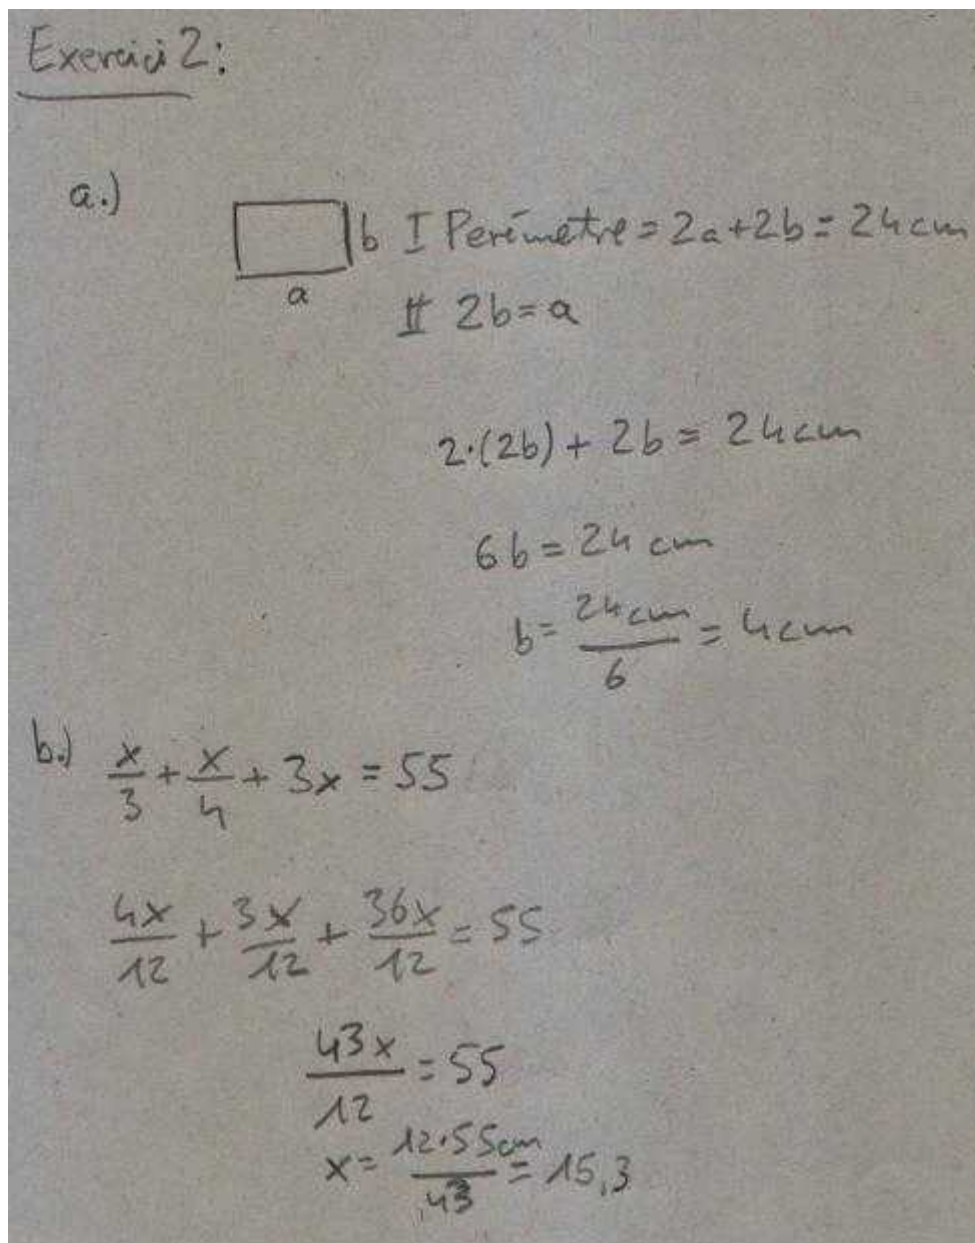 Exercici 2:
a.)
b I Perímetre = 2a+2b = 24cm
a
II 2b=a
2·(2b) + 2b = 24cm
6b = 24 cm
b = 24cm/6 = 4cm
b.) x/3 + x/4 + 3x = 55
4x/12 + 3x/12 + 36x/12 = 55
43x/12 = 55
x = 12·55cm/43 = 15,3